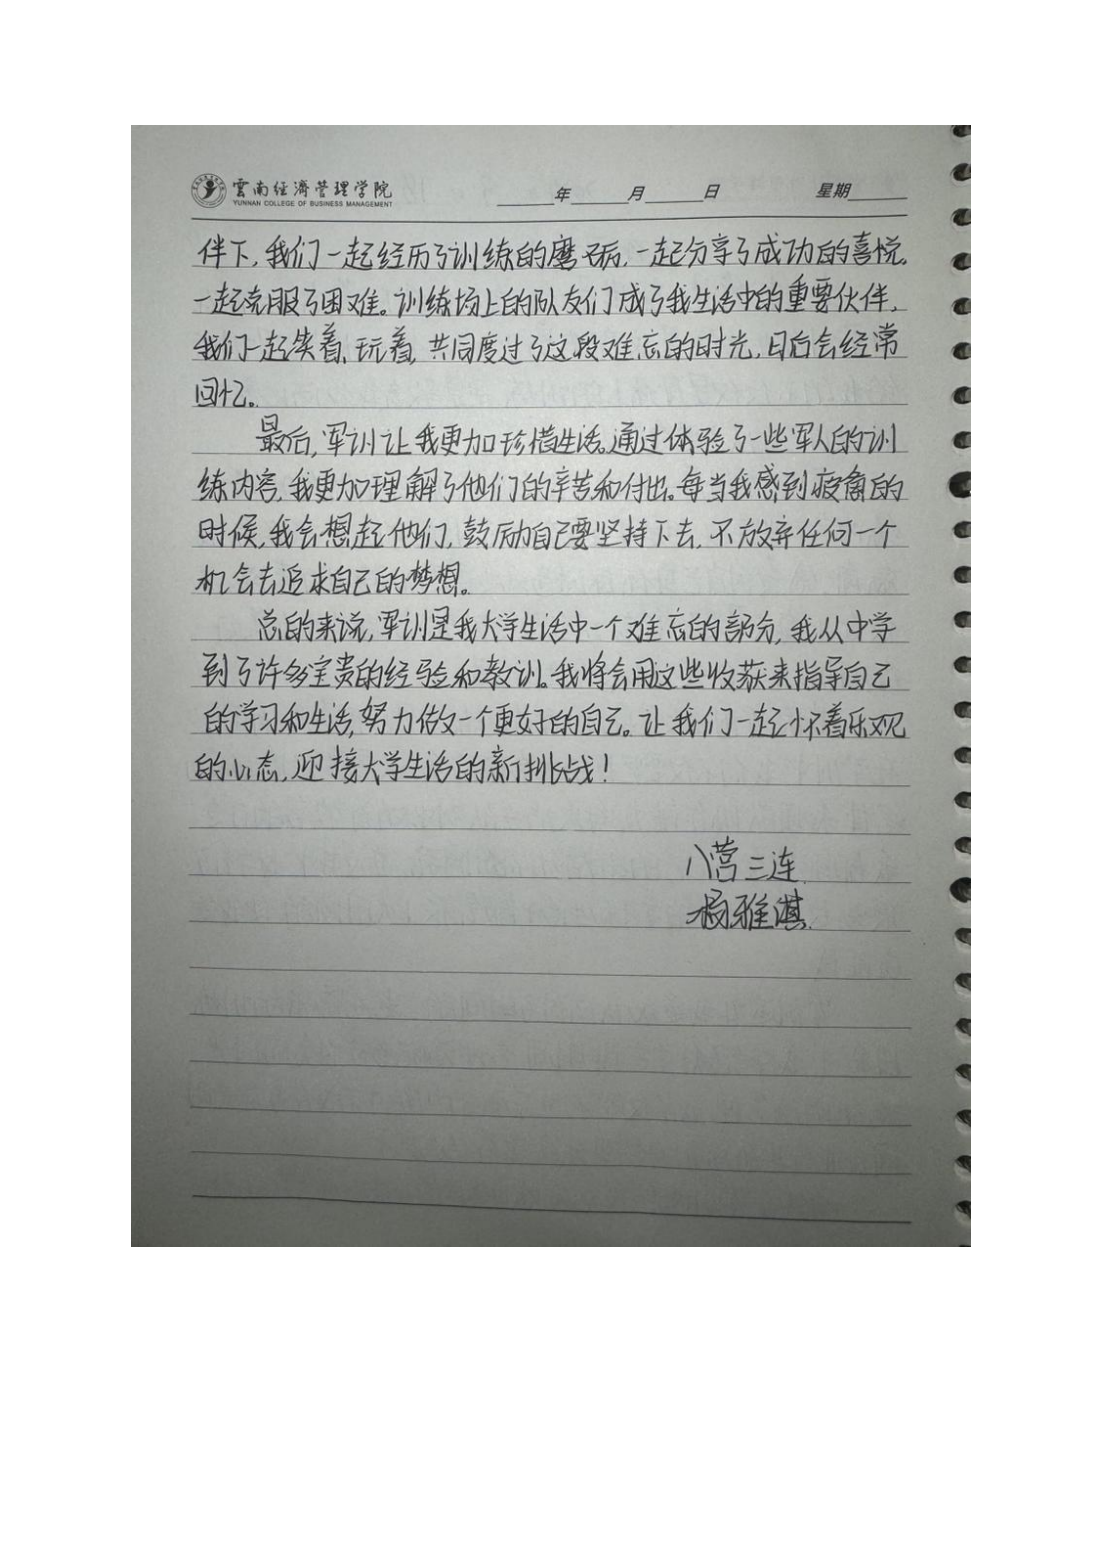 雲南经济管理学院
YUNNAN COLLEGE OF BUSINESS MANAGEMENT
年 月 日 星期
伴下,我们一起经历了训练的磨砺,一起分享了成功的喜悦,
一起克服了困难。训练场上的队友们成了我生活中的重要伙伴,
我们一起笑着、玩着,共同度过了这段难忘的时光,日后会经常
回忆。
最后,军训让我更加珍惜生活。通过体验了一些军人的训
练内容,我更加理解了他们的辛苦和付出。每当我感到疲惫的
时候,我会想起他们,鼓励自己要坚持下去,不放弃任何一个
机会去追求自己的梦想。
总的来说,军训是我大学生活中一个难忘的部分,我从中学
到了许多宝贵的经验和教训。我将会用这些收获来指导自己
的学习和生活,努力做一个更好的自己。让我们一起怀着乐观
的心态,迎接大学生活的新挑战!
八营三连
杨雅淇